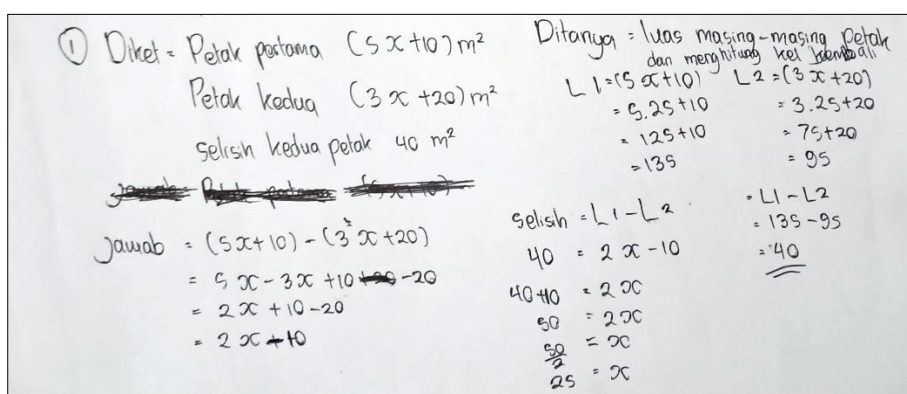 ① Diket = Petak pertama (5x+10) m²
Petak kedua (3x+20) m²
Selisih kedua petak 40 m²
Jawab = (5x+10) - (3x+20)
= 5x - 3x + 10 - 20
= 2x + 10 - 20
= 2x - 10
Ditanya = luas masing-masing Petak
dan menghitung kel kembali
L1 = (5x+10)
= 5.25+10
= 125+10
= 135
L2 = (3x+20)
= 3.25+20
= 75+20
= 95
Selisih = L1 - L2
40 = 2x - 10
40+10 = 2x
50 = 2x
50/2 = x
25 = x
= L1 - L2
= 135 - 95
= 40